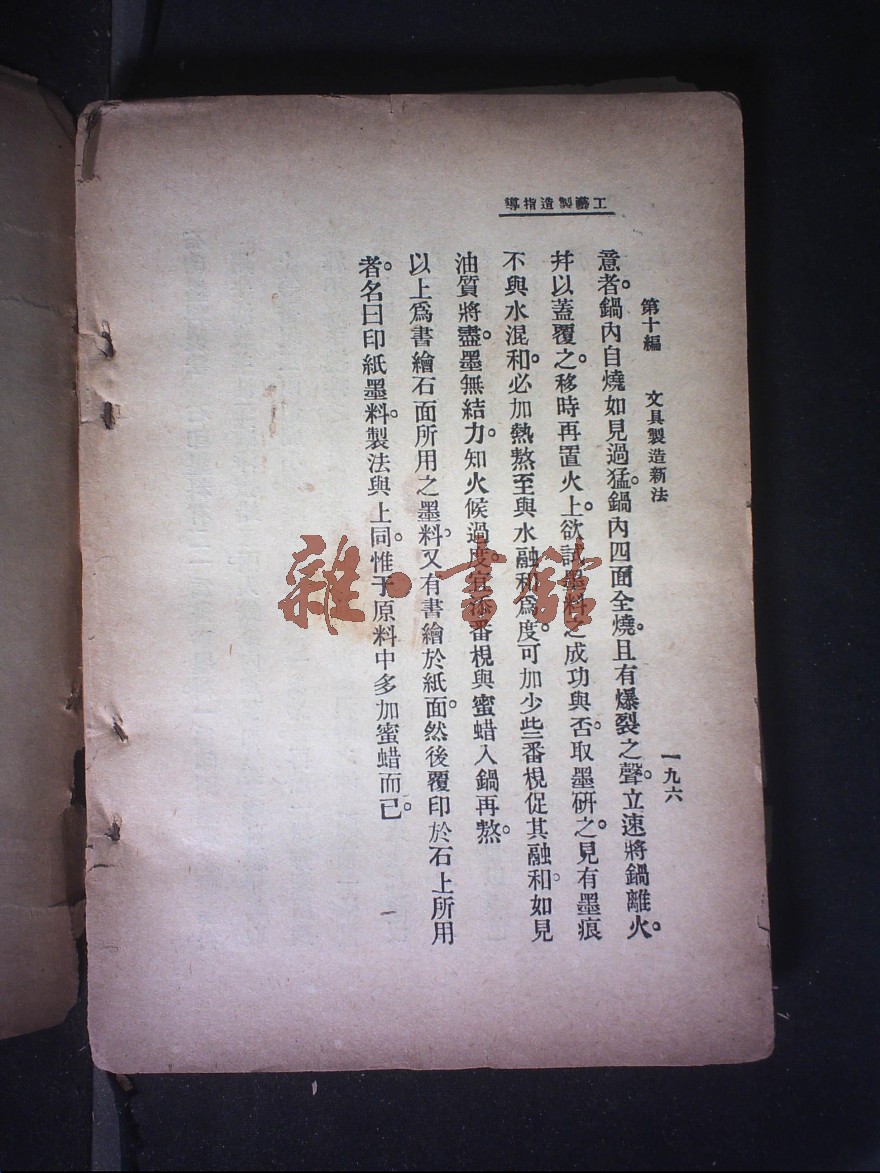 工藝製造指導
第十編　文具製造新法　一九六
意者。鍋內自燒如見過猛。鍋內四面全燒。且有爆裂之聲。立速將鍋離火。
幷以蓋覆之。移時再置火上。欲試墨料之成功與否。取墨硏之。見有墨痕
不與水混和。必加熱熬至與水融和爲度。可加少些番梘促其融和。如見
油質將盡。墨無結力。知火候過度。宜添番梘與蜜蜡入鍋再熬。
以上爲書繪石面所用之墨料。又有書繪於紙面。然後覆印於石上所用
者。名曰印紙墨料。製法與上同。惟于原料中多加蜜蜡而已。
雜·書館